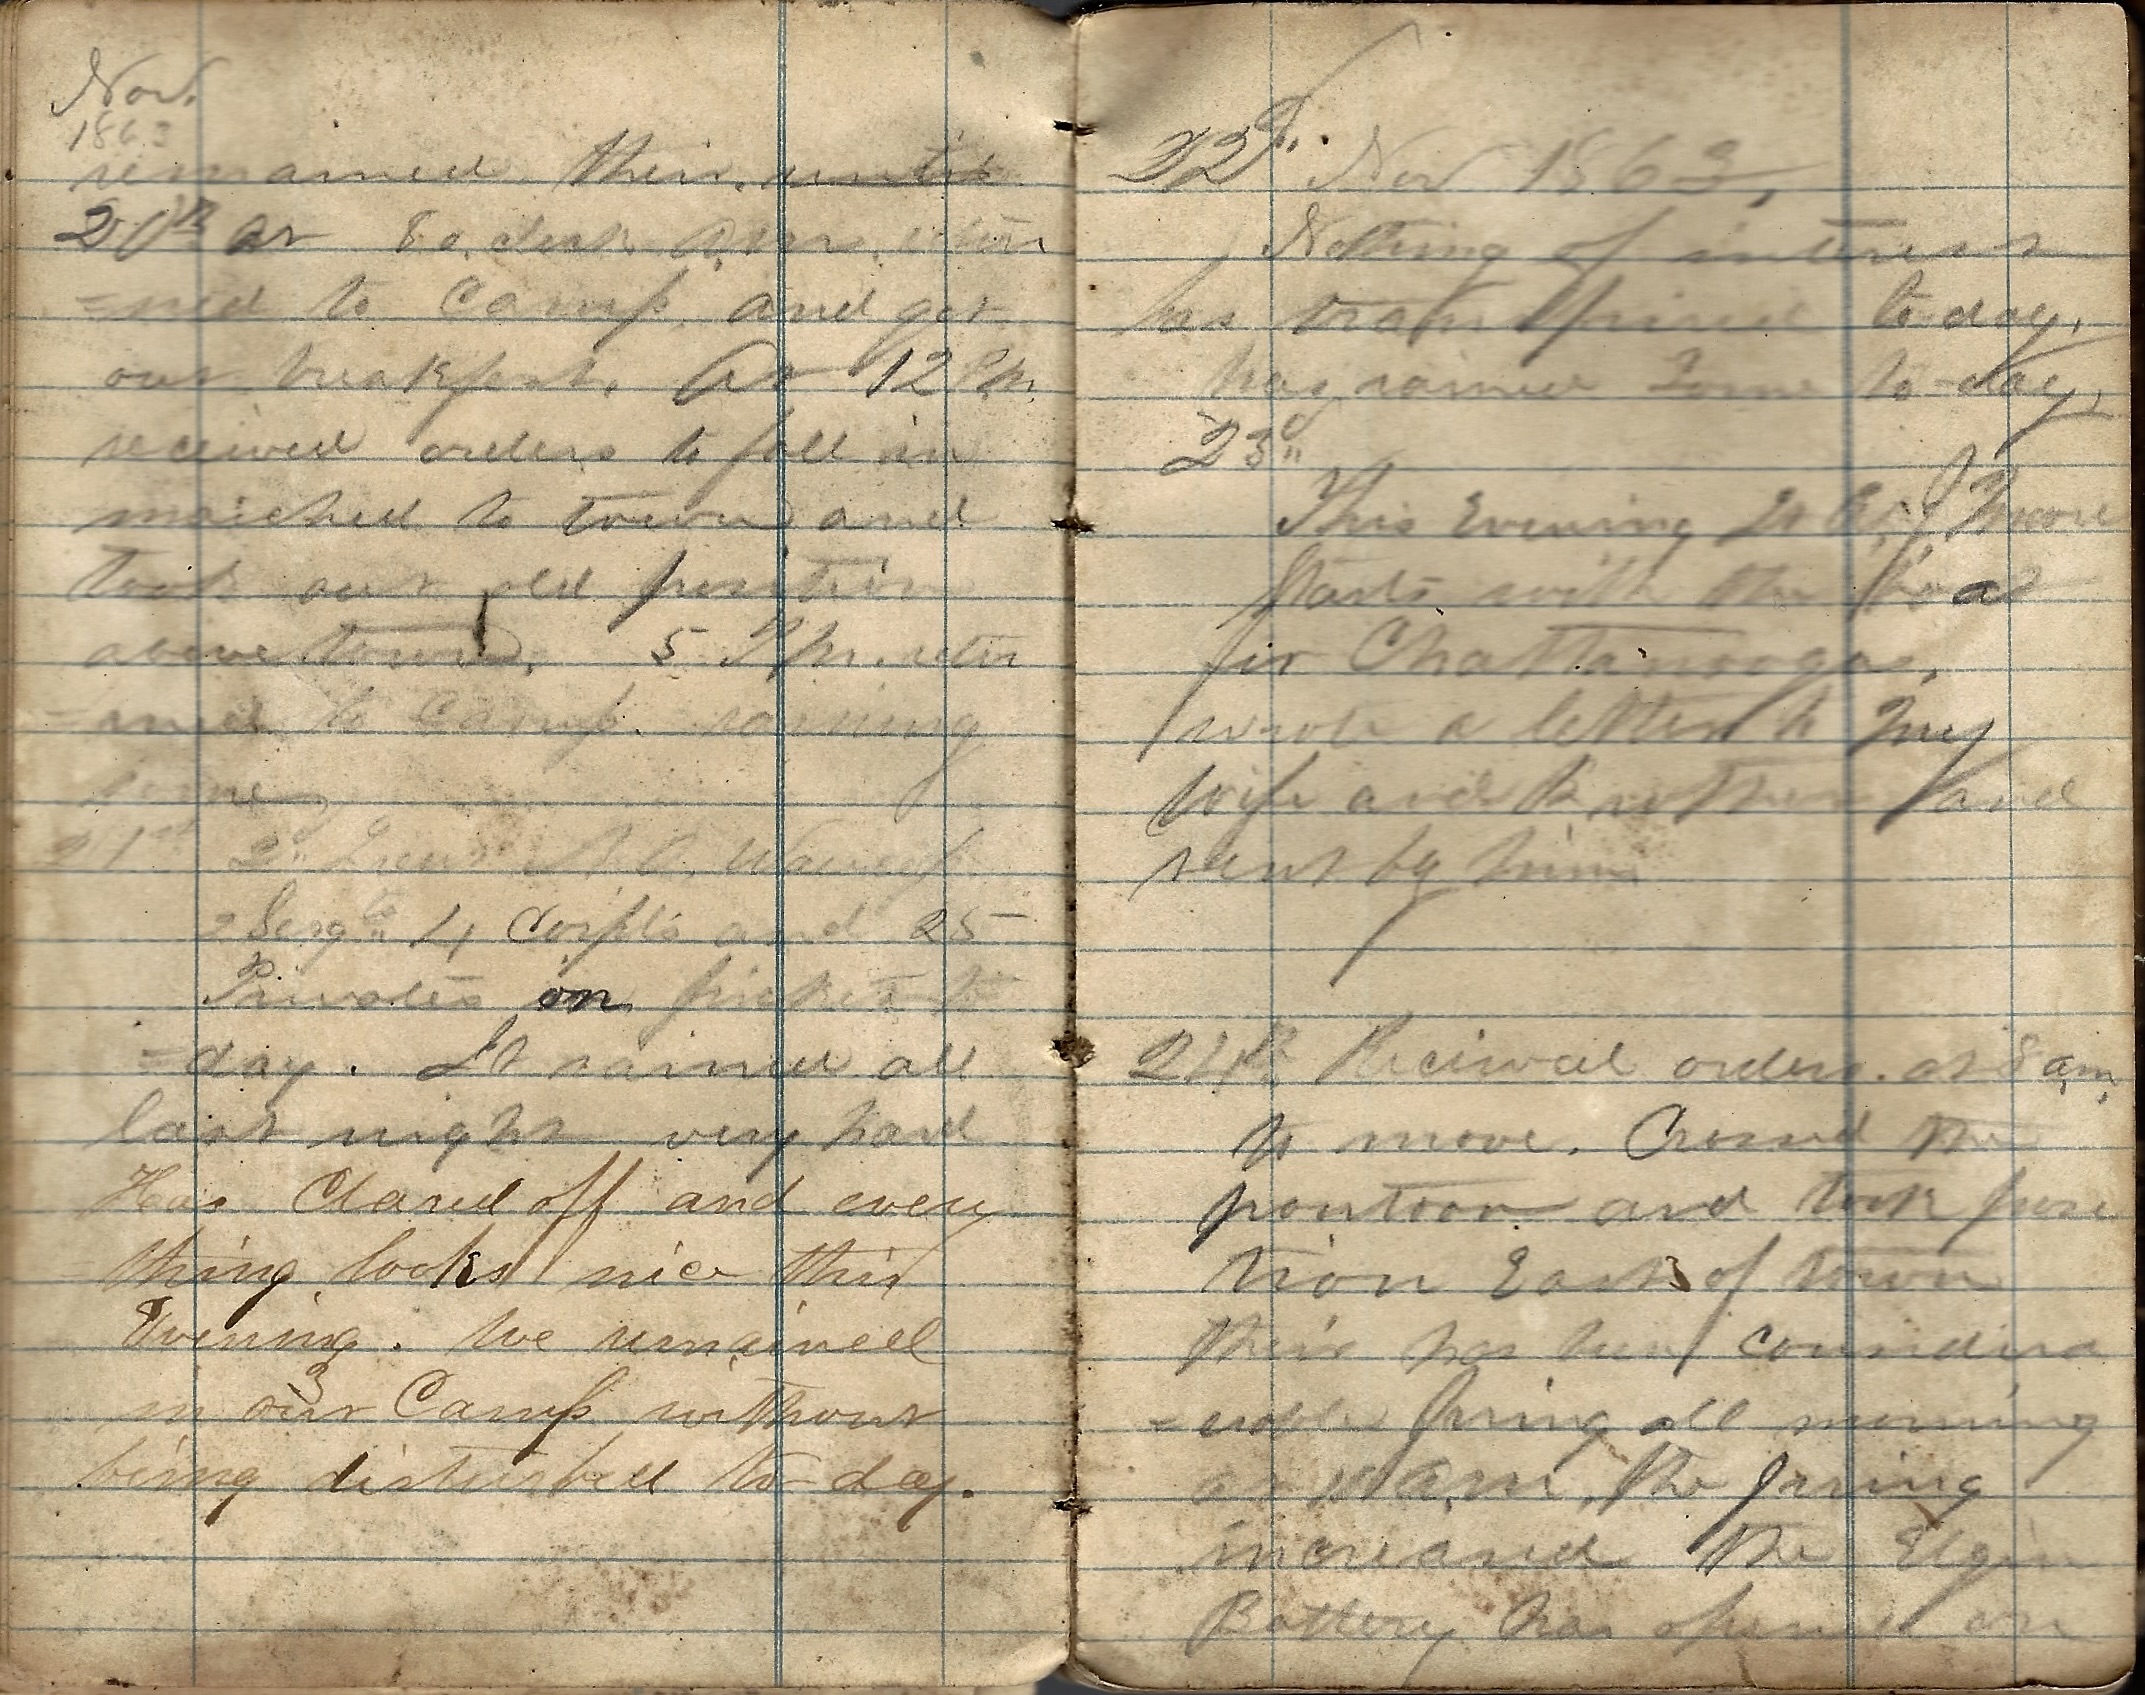 Nov.
1863
remained their. until
20th at 8 o,clock A.m. retur
=ned to Camp, and got
our breakfast. At 12 P.m.
received orders to fall in
marched to town and
took our old position
above town. 5 P.m. retur
=ned to Camp. raining
some
21st 2d Lieut
2 Sergts 4 Corpls and 25
Privates on picket to
=day. It rained all
last night very hard
Has Clared off and every
thing looks nice this
Evening. We remained
in our Camp without
being disturbed to-day.
22d. Nov 1863.
Nothing of interest
has transpired to day.
has rained some to-day,
23d
This Evening Moore
starts with the
for Chattanooga,
wrote a letter to my
wife and Brother and
sent by him
24th Received orders. at 8 am,
to move. Crossed the
pontoon and took posi
tion East of town
their has been considera
=erable firing all morning
at 10 A.m. the firing
increased the Elgin
Battery has opened on